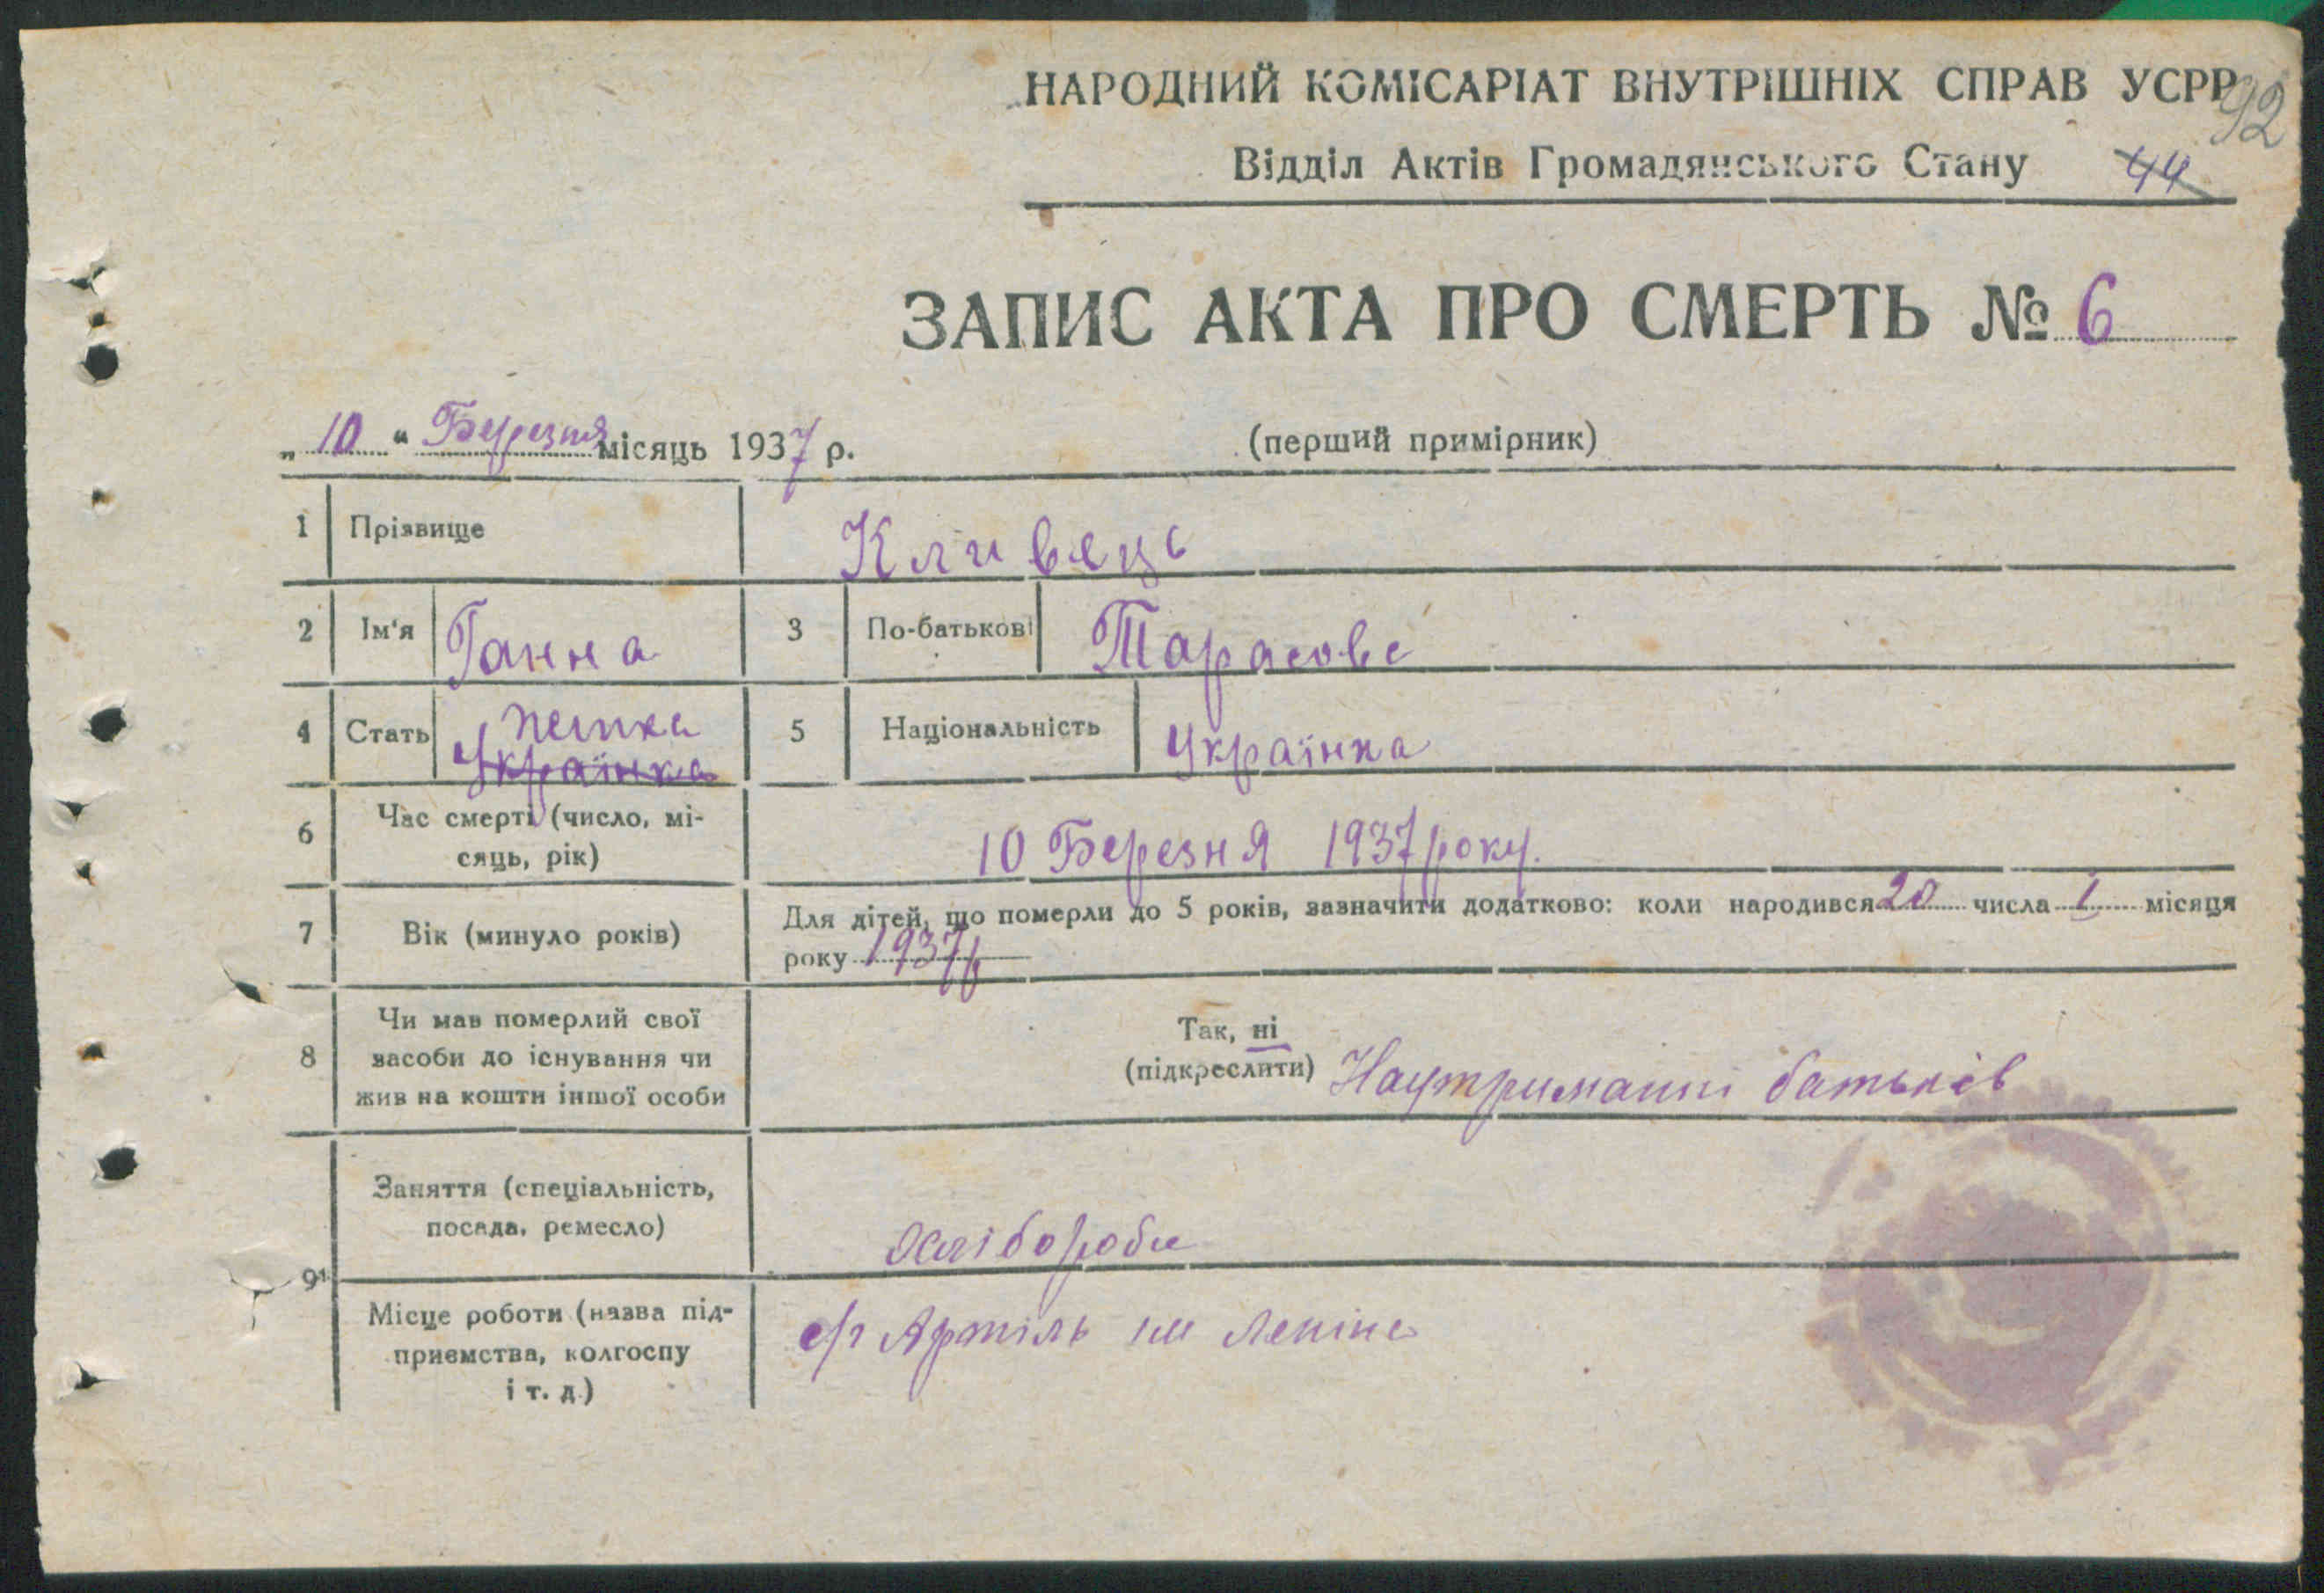 НАРОДНИЙ КОМІСАРІАТ ВНУТРІШНІХ СПРАВ УСРР
92
Відділ Актів Громадянського Стану 44
ЗАПИС АКТА ПРО СМЕРТЬ № 6
„ 10 “ Березня місяць 1937 р.
(перший примірник)
1 Прізвище Кливець
2 Ім'я Ганна 3 По-батькові Тарасовс
4 Стать жінка Українка 5 Національність Українка
6 Час смерті (число, мі-
сяць, рік) 10 Березня 1937 року.
7 Вік (минуло років) Для дітей, що померли до 5 років, зазначити додатково: коли народився 20 числа I місяця
року 1937р
8 Чи мав померлий свої
засоби до існування чи
жив на кошти іншої особи
Так, ні
(підкреслити) Наутриманні батьків
9 Заняття (спеціальність,
посада, ремесло) хлібороби
Місце роботи (назва під-
приємства, колгоспу
і т. д.) с/г Артіль ім Леніна